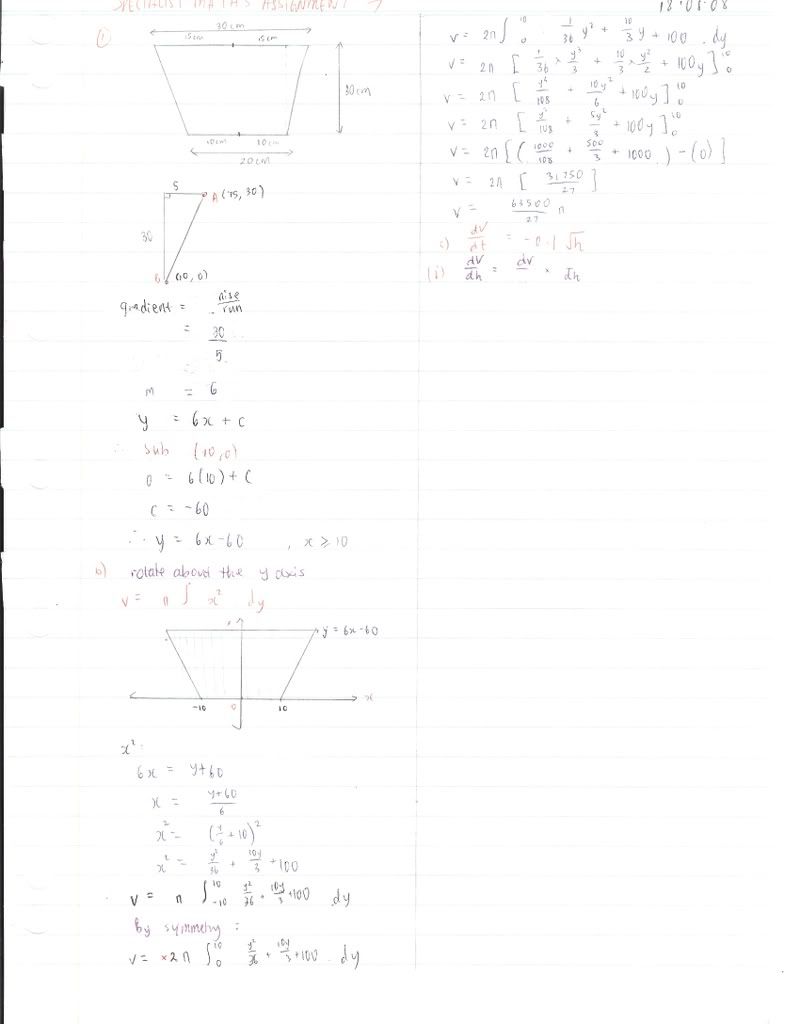 SPECIALIST MATHS ASSIGNMENT →
18.05.08
①
30cm
15cm 15cm
30cm
10cm 10cm
20cm
5
A (15, 30)
30
B (10, 0)
gradient = rise/run
= 30/5
m = 6
y = 6x + c
∴ sub (10,0)
0 = 6(10) + c
c = -60
∴ y = 6x-60 , x ≥ 10
b) rotate about the y axis
v = π ∫ x² dy
y = 6x-60
-10 0 10 x
x²:
6x = y+60
x = y+60/6
x² = (y/6 + 10)²
x² = y²/36 + 10y/3 + 100
v = π ∫₋₁₀¹⁰ y²/36 + 10y/3 + 100 dy
By symmetry :
v = ×2π ∫₀¹⁰ y²/36 + 10y/3 + 100 dy
v = 2π ∫₀¹⁰ 1/36 y² + 10/3 y + 100 . dy
v = 2π [ 1/36 × y³/3 + 10/3 × y²/2 + 100y ]₀¹⁰
v = 2π [ y³/108 + 10y²/6 + 100y ]₀¹⁰
v = 2π [ y³/108 + 5y²/3 + 100y ]₀¹⁰
v = 2π [ ( 1000/108 + 500/3 + 1000 ) - (0) ]
v = 2π [ 31750/27 ]
v = 63500/27 π
c) dV/dt = -0.1 √h
(i) dV/dh = dv × dh